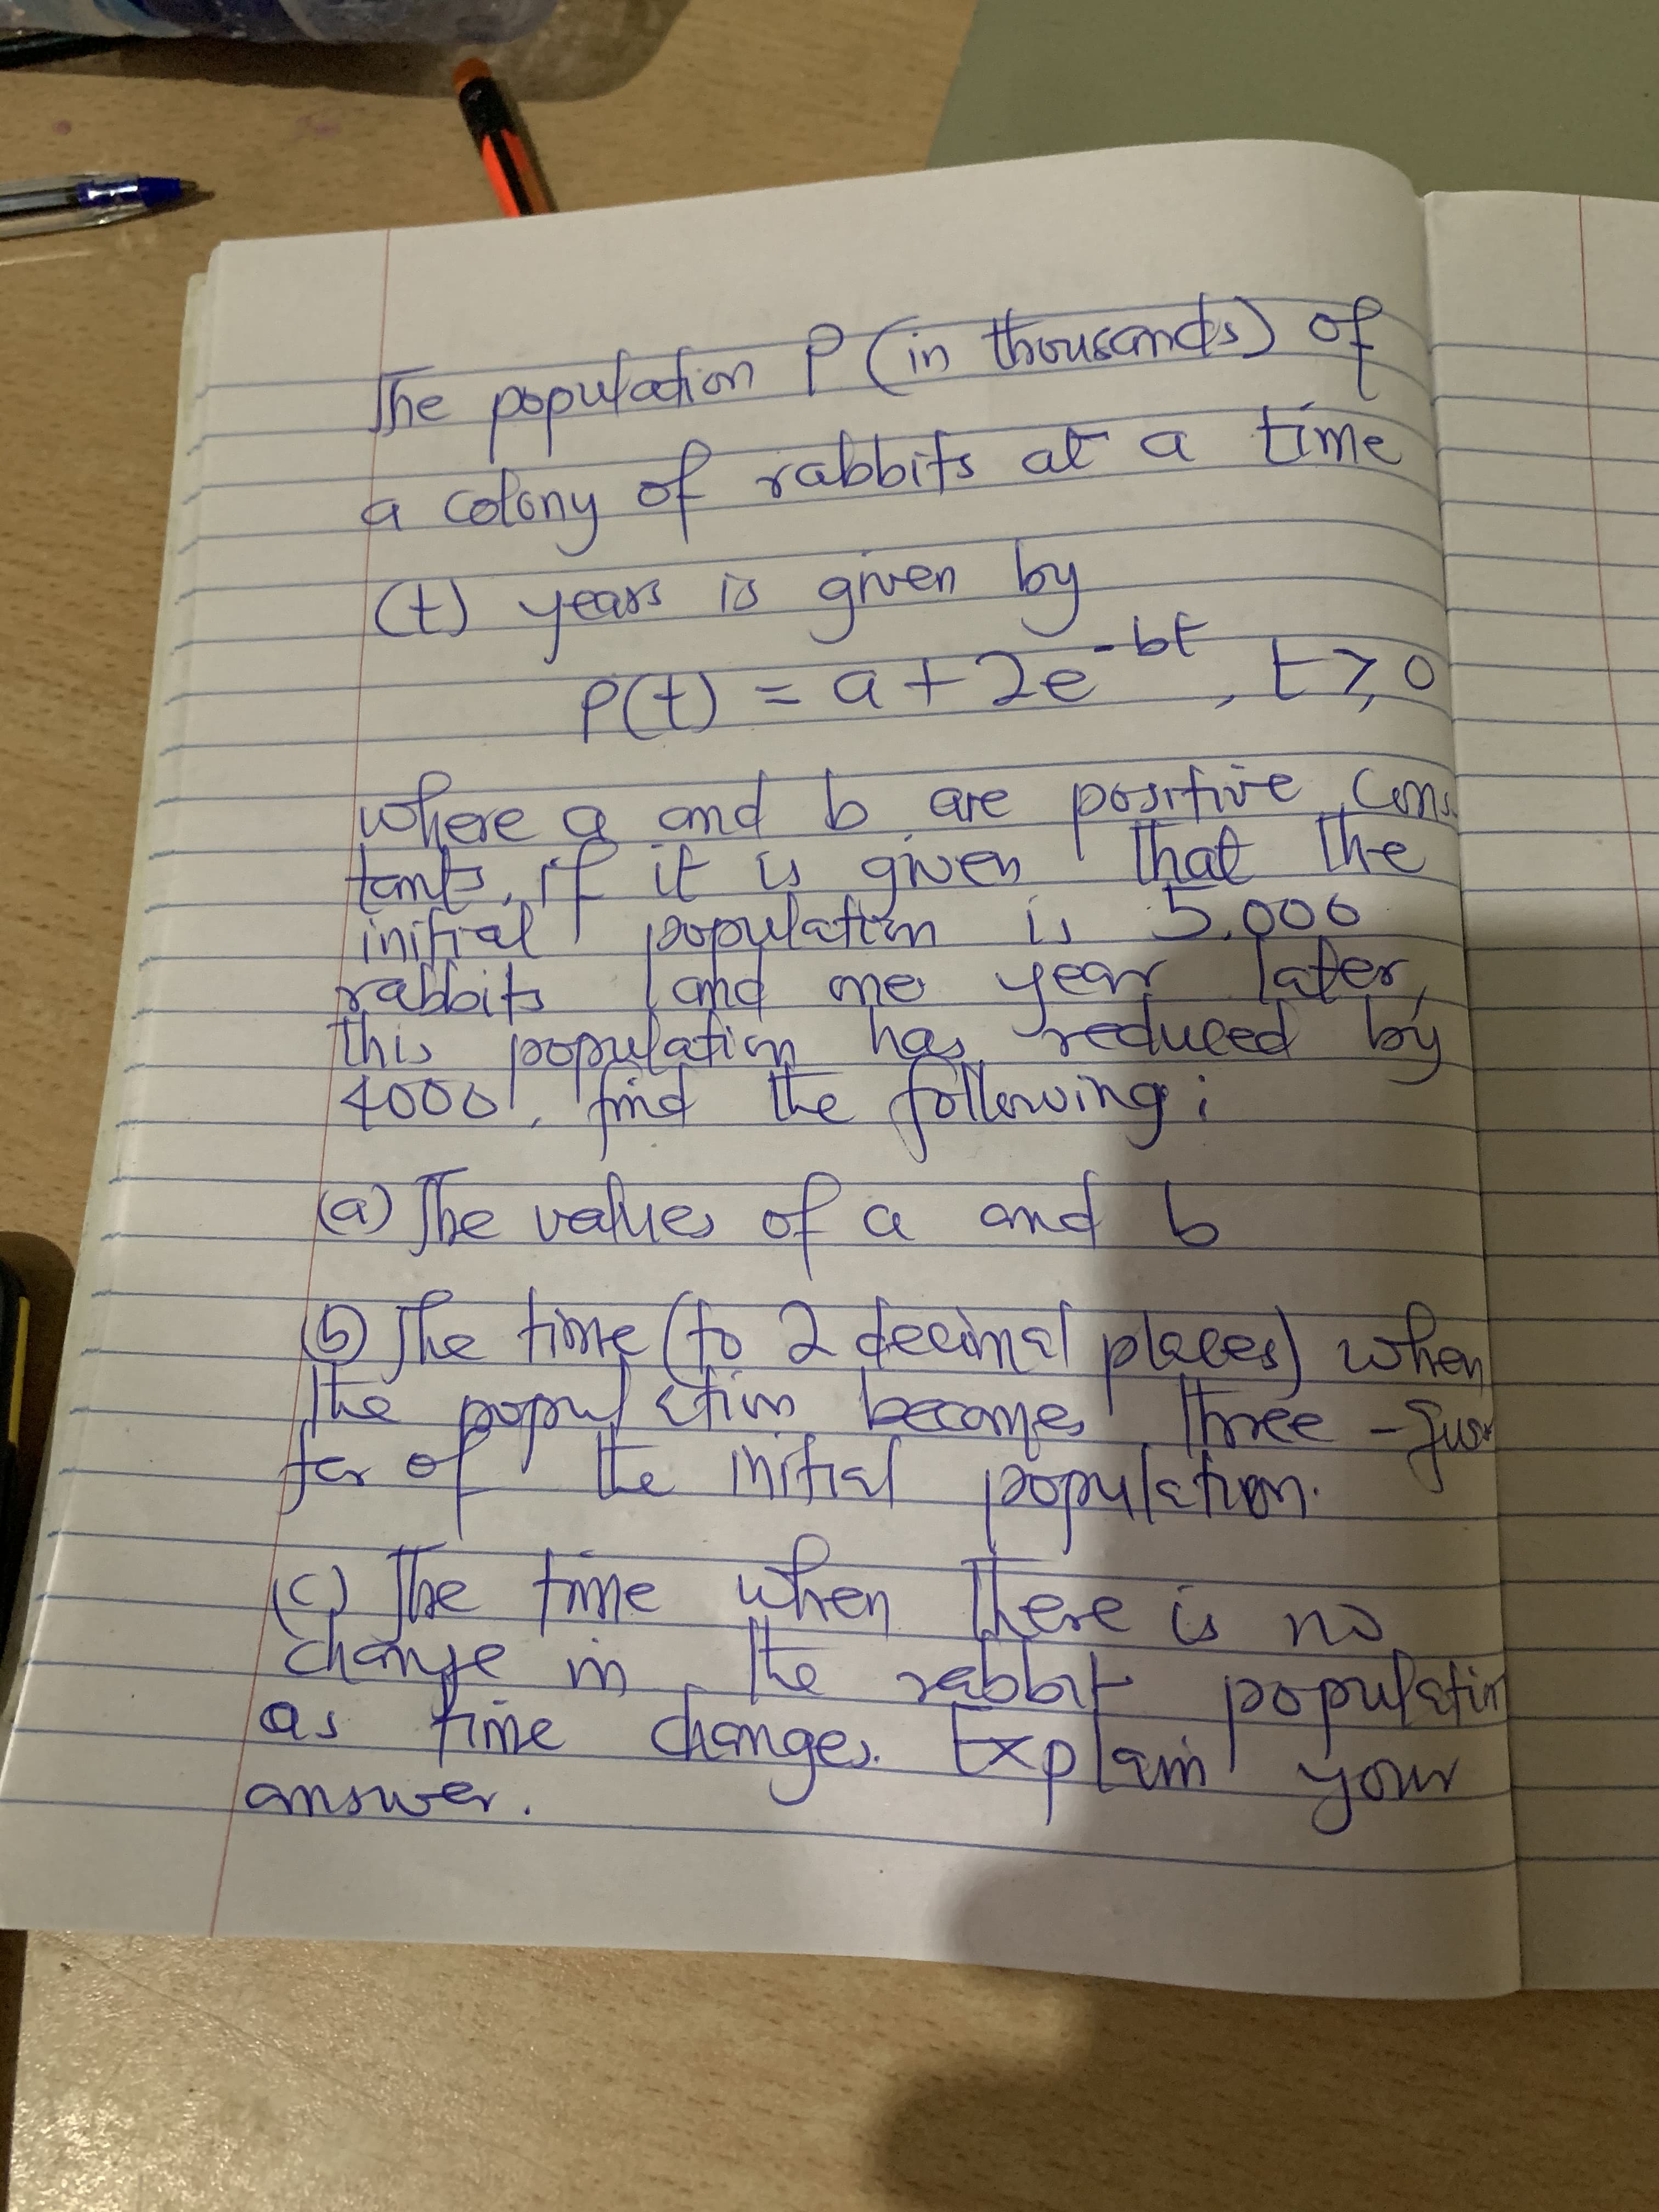 The population P (in thousands) of
a colony of rabbits at a time
(t) years is given by
P(t) = a + 2e^{-bt}, t ≥ 0
where a and b are positive cons
tants, if it is given that the
initial population is 5,000
rabbits and one year later,
this population has reduced by
4000, find the following:
(a) The values of a and b
(b) The time (to 2 decimal places) when
the population becomes three-quar
ter of the initial population.
(c) The time when there is no
change in the rabbit population
as time changes. Explain your
answer.